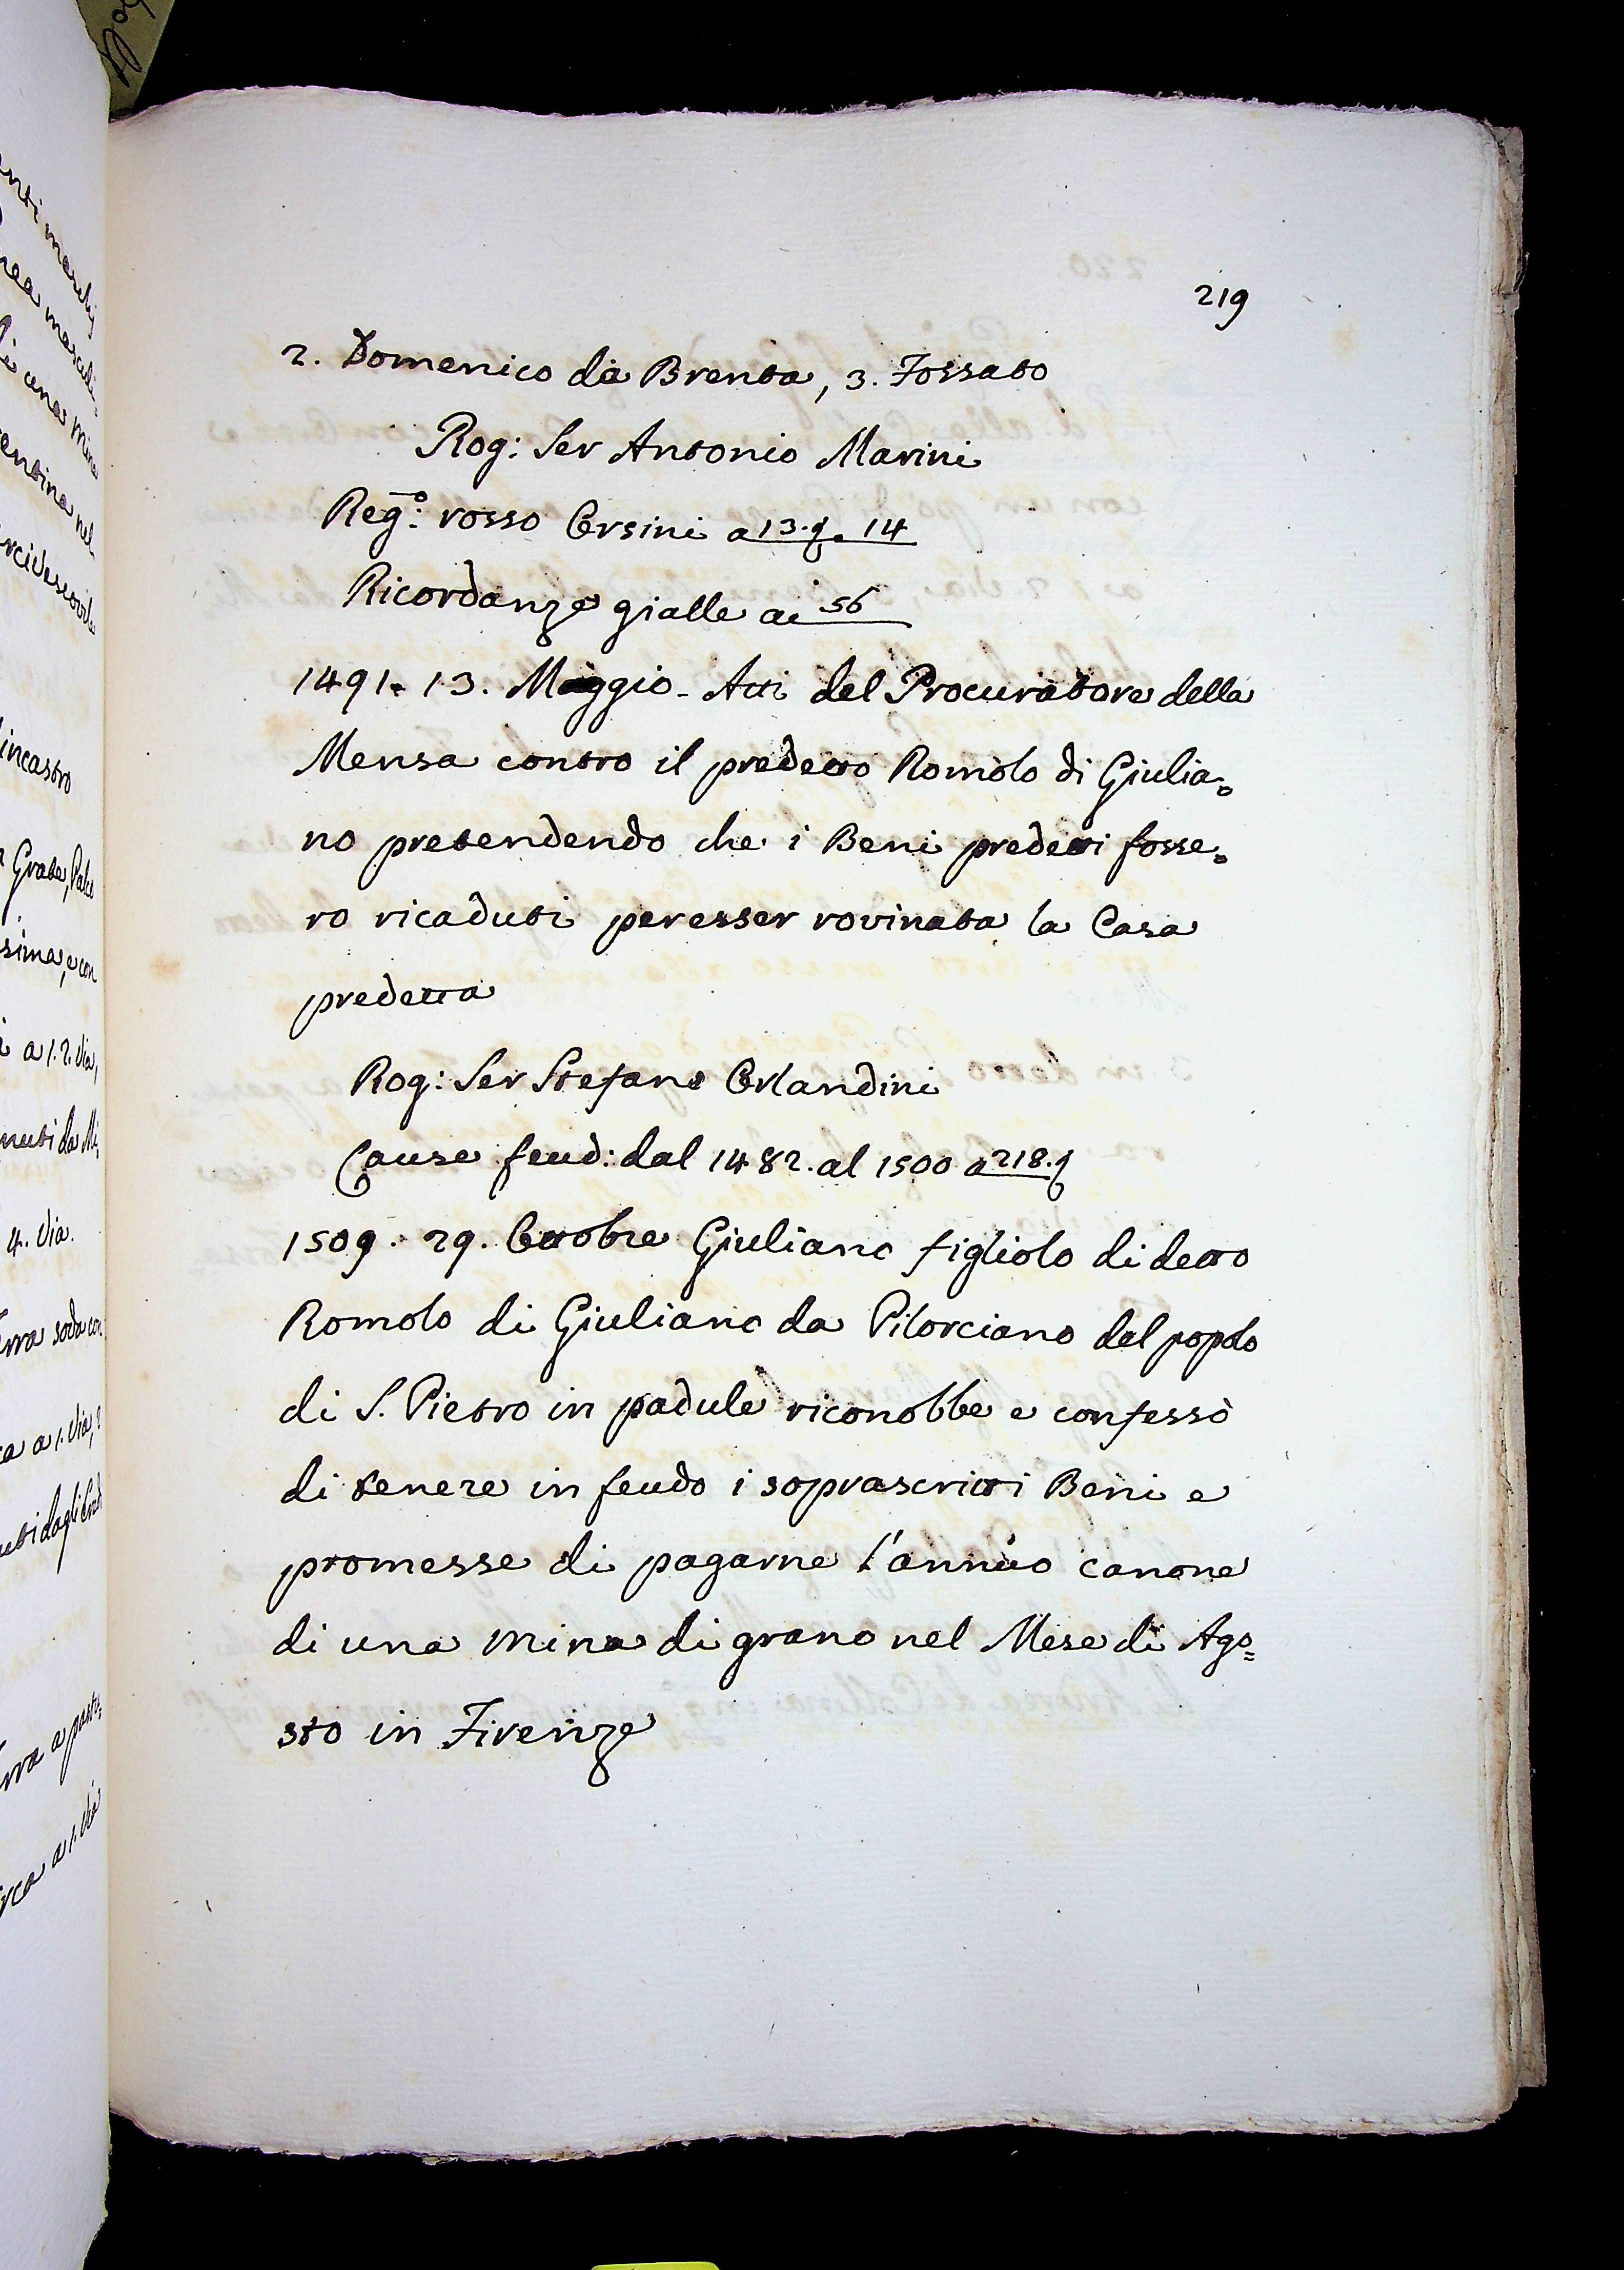 219
2. Domenico da Brenta, 3. Fossato
Rog: Ser Antonio Marini
Reg:º rosso Orsini a 13. t. 14
Ricordanze gialle a 56
1491. 13. Maggio. Atti del Procuratore della
Mensa contro il predetto Romolo di Giulia=
no pretendendo che i Beni predetti fosse=
ro ricaduti per esser rovinata la Casa
predetta
Rog: Ser Stefano Orlandini
Cause feud: dal 1482. al 1500 a 218. t
1509. 29. Ottobre Giuliano figliolo di detto
Romolo di Giuliano da Pilorciano del popolo
di S. Pietro in padule riconobbe e confessò
di tenere in feudo i soprascritti Beni e
promesse di pagarne l'annuo canone
di una mina di grano nel Mese di Ago=
sto in Firenze